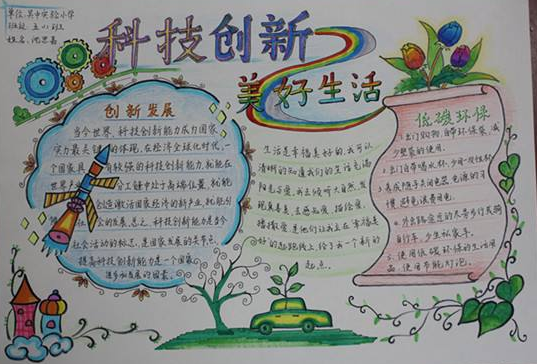 单位:吴中实验小学
班级:五八班
姓名:沈思嘉
科技创新
美好生活
创新发展
当今世界,科技创新能力成为国家
实力最关键的体现,在经济全球化时代,一
个国家具有较强的科技创新能力,就能在
世界产业分工链中处于高端位置,就能
创造激活国家经济的新产业,就能创
的发展,总之,科技创新能力是当今
社会活动的标志,是国家发展的关节点,
提高科技创新能力是一个国家
进步和发展的因素。
生活是幸福美好的,我可以
清晰的知道我们的生活充满
阳光与爱,我去倾听大自然,发
现真善美,去感知爱,描绘爱,
播撒爱,是他们让我长在幸福美
好的起跑线上,给予我一个新的
起点。
低碳环保
1.出门购物,自带环保袋,减
少塑袋的使用。
2.出门自带喝水杯,少用一次性杯
3.养成随手关闭电器电源的习
惯,避免浪费用电。
4.外出路途近的尽量步行或骑
自行车,少坐私家车。
5.使用低碳环保的生活用
品,使用节能灯泡。